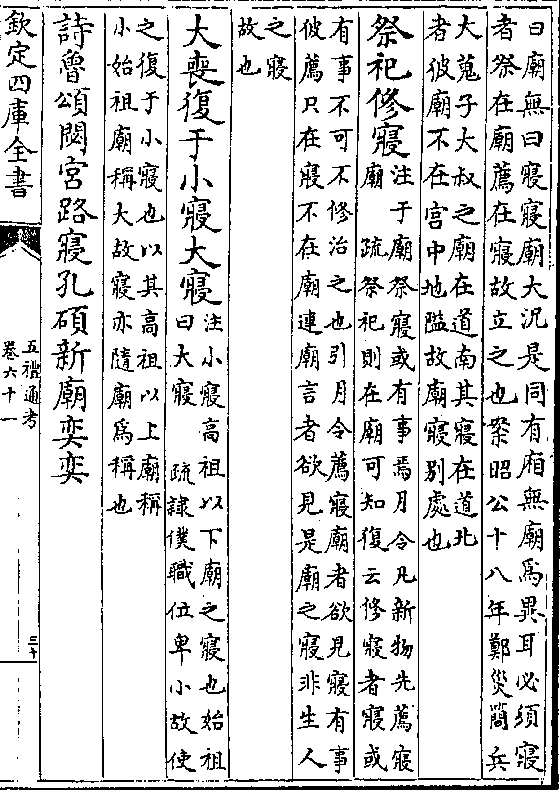 曰廟無曰寢寢廟大況是同有廂無廟為異耳必須寢
者祭在廟薦在寢故立之也案昭公十八年鄭災簡兵
大蒐子大叔之廟在道南其寢在道北
者彼廟不在宫中地隘故廟寢别處也
祭祀修寢
注于廟祭寢或有事焉月令凡新物先薦寢
廟 疏祭祀則在廟可知復云修寢者寢或
有事不可不修治之也引月令薦寢廟者欲見寢有事
彼薦只在寢不在廟連廟言者欲見是廟之寢非生人
之寢
故也
大喪復于小寢大寢
注小寢高祖以下廟之寢也始祖
曰大寢 疏隷僕職位卑小故使
之復于小寢也以其高祖以上廟稱
小始祖廟稱大故寢亦隨廟為稱也
詩魯頌閟宮路寢孔碩新廟奕奕
欽定四庫全書
五禮通考
卷六十一
三十